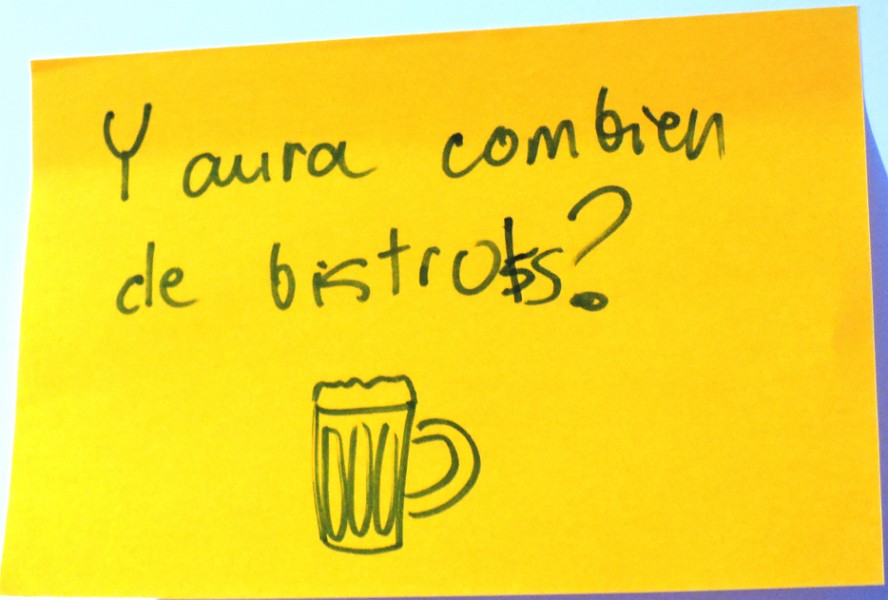 Y aura combien
de bistrots?